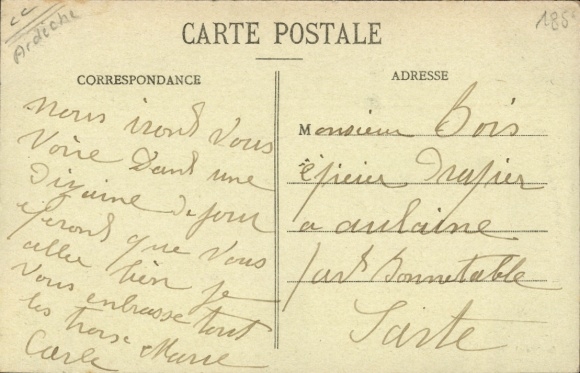 cc
Ardèche
185
CARTE POSTALE
CORRESPONDANCE
nous irons Vous
Voire Dans une
Dizaine De jour
que Vous
aller bien je
Vous enbrasse tout
les trois
Marie
ADRESSE
Monsieur Bois
épicier Drapier
a aulaine
par Bonnetable
Sarte